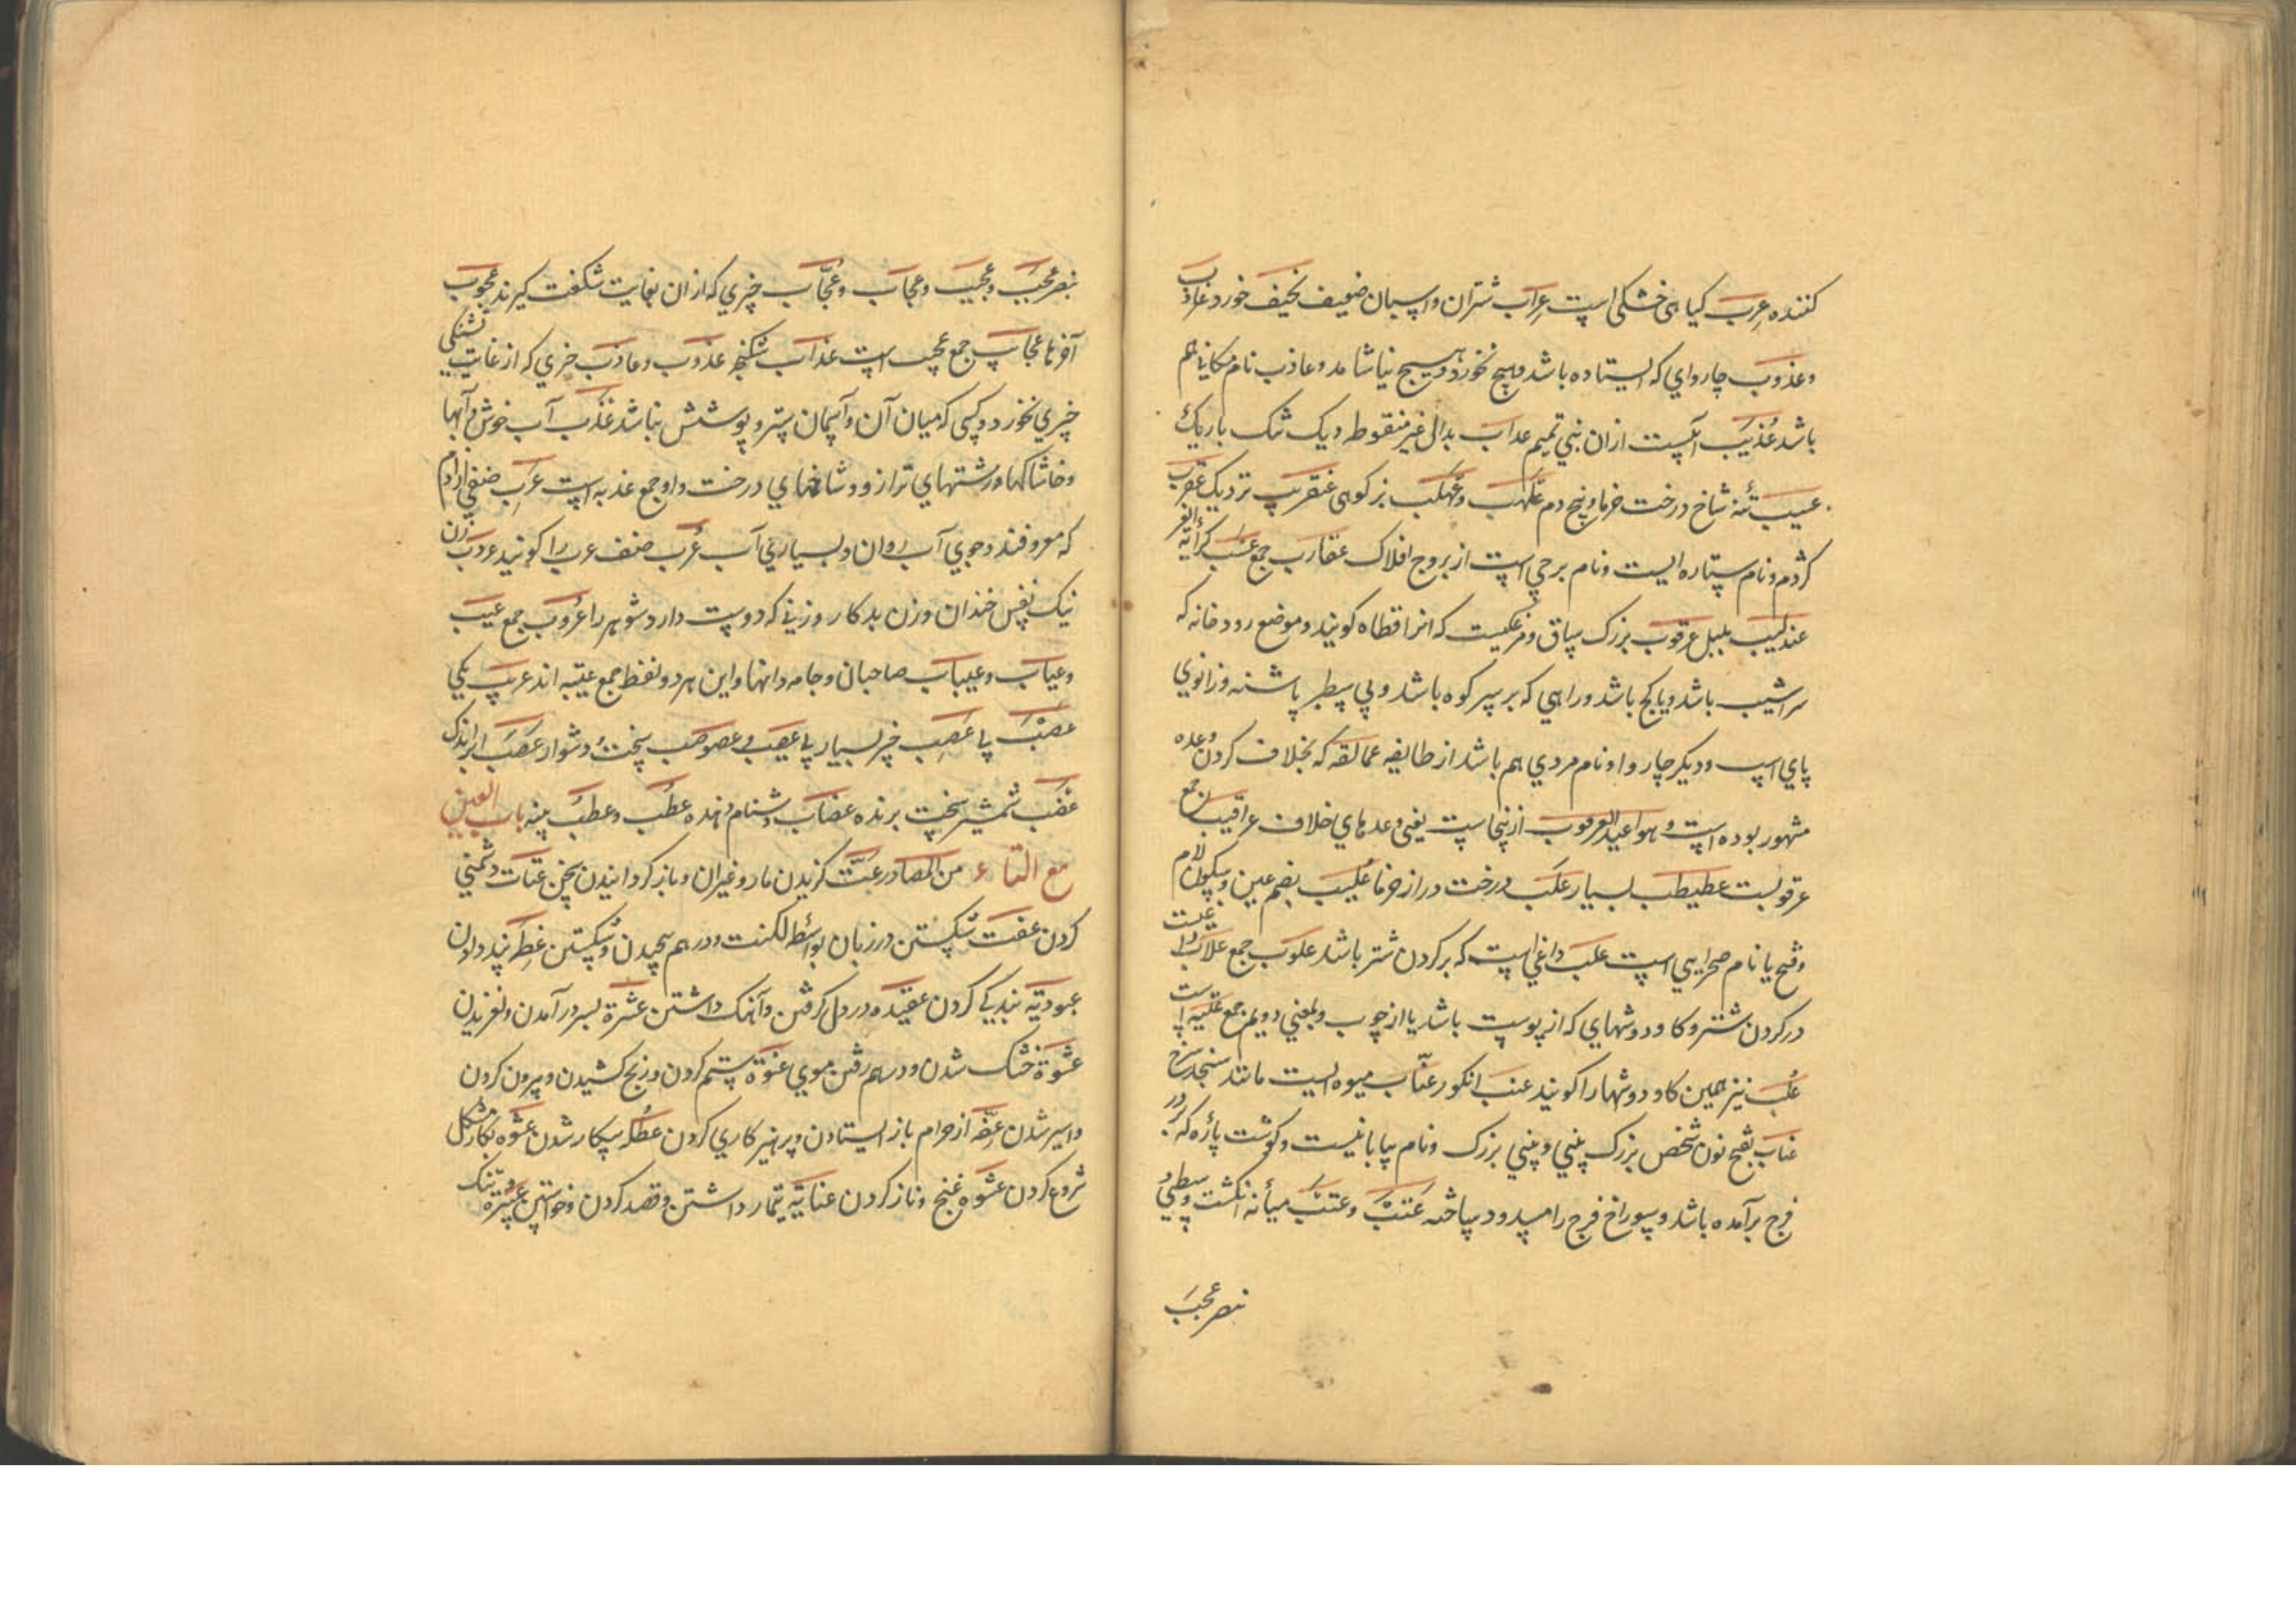 کننده عرب کیاهی خشکی است عراب شتران و اسپان ضعیف نحیف خورد عاذب
و عذوب چاروای که ایستاده باشد و هیچ نخورد و هیچ نیاشامد و عاذب نام مکانی هم
باشد عذیب آبیست ازان بنی تمیم عداب بدال غیر منقوطه ریک تنک باریک
عسیب تنهٔ شاخ درخت خرما و بیخ دم علهب و عهلب بز کوهی عنقریب نزدیک عقرب
کژدم و نام ستاره ایست و نام برجی است از بروج افلاک عقارب جمع
عندلیب بلبل عرقوب بزرک ساق و مرغکیست که انرا قطاه کویند و موضع رودخانه که
سراشیب باشد و یا کج باشد و راهی که بر سر کوه باشد و پی سطبر پاشنه و زانوی
پای اسب و دیکر چاروا و نام مردی هم باشد از طایفه عمالقه که بخلاف کردن وعده
مشهور بوده است و مواعید العرقوب ازینجاست یعنی وعدهای خلاف عراقیب جمع
عرقوبست عطیطب بسیار علب درخت دراز خرما علیب بضم عین و سکون لام
و فتح یا نام صحرایی است علب داغی است که بر کردن شتر باشد علوب جمع علاب
در کردن شتر و کاودوشهای که از پوست باشد یا از چوب و بمعنی دویم جمع علبه است
علب نیز همین کاودوشها را کویند عنب انکور عناب میوه ایست مانند سنجد سرخ
عناب بفتح نون شخص بزرک بینی و بینی بزرک و نام بیابانیست و کوشت پاره که در
فرج برآمده باشد و سوراخ فرج را مسدود ساخته عتب و عتب میانه انکشت وسطی و
بنصر عجب
بنصر عجب و عجیب و عجاب و عجاب چیزی که ازان بغایت شکفت کیرند عجوب
آخرها عجاب جمع عجب است عذاب شکنجه عذوب و عاذب خری که از غایت تشنکی
چیزی نخورد و کسی که میان آن و آسمان ستر و پوشش نباشد عذب آب خوش و آبها
و خاشاکها و رشتهای ترازو و شاخهای درخت و او جمع عذبه است عرب صنفی از آدم
که معروفند و جوی آب روان و بسیاری آب عرب صنف عرب را کویند عروب زن
نیک نفس خندان و زن بدکار و زنی که دوست دارد شوهر را عروب جمع عیب
و عیاب و عیباب صاحبان و جامه دانها و این هر دو لفظ جمع عیبه اند عریب یکی
عصب پا عصب چیز بسیار پا عصب پی عصوصب سخت و دشوار عصب ابر اندک
عضب شمشیر سخت برنده عضاب دشنام دهنده عطب و عطب پنبه باب العین
مع التاء من المصادر عنت کزیدن مار و غیران و باز کردانیدن سخن عتات دشمنی
کردن عفت شکستن در زبان بواسطه لکنت و درهم پیچیدن و شکستن عظه پند دادن
عبودیة بندکی کردن عقیده در دل کرفتن و آهنک داشتن عثرة بسر درآمدن و لغزیدن
عشوة خشک شدن و درهم رفتن موی عنوة ستم کردن و رنج کشیدن و بیرون کردن
و اسیر شدن عفه از حرام باز ایستادن و پرهیزکاری کردن عطله بیکار شدن عشوه بکار مشکل
شروع کردن عشوه غنج و ناز کردن عنایة تیمار داشتن و قصد کردن و خواستن